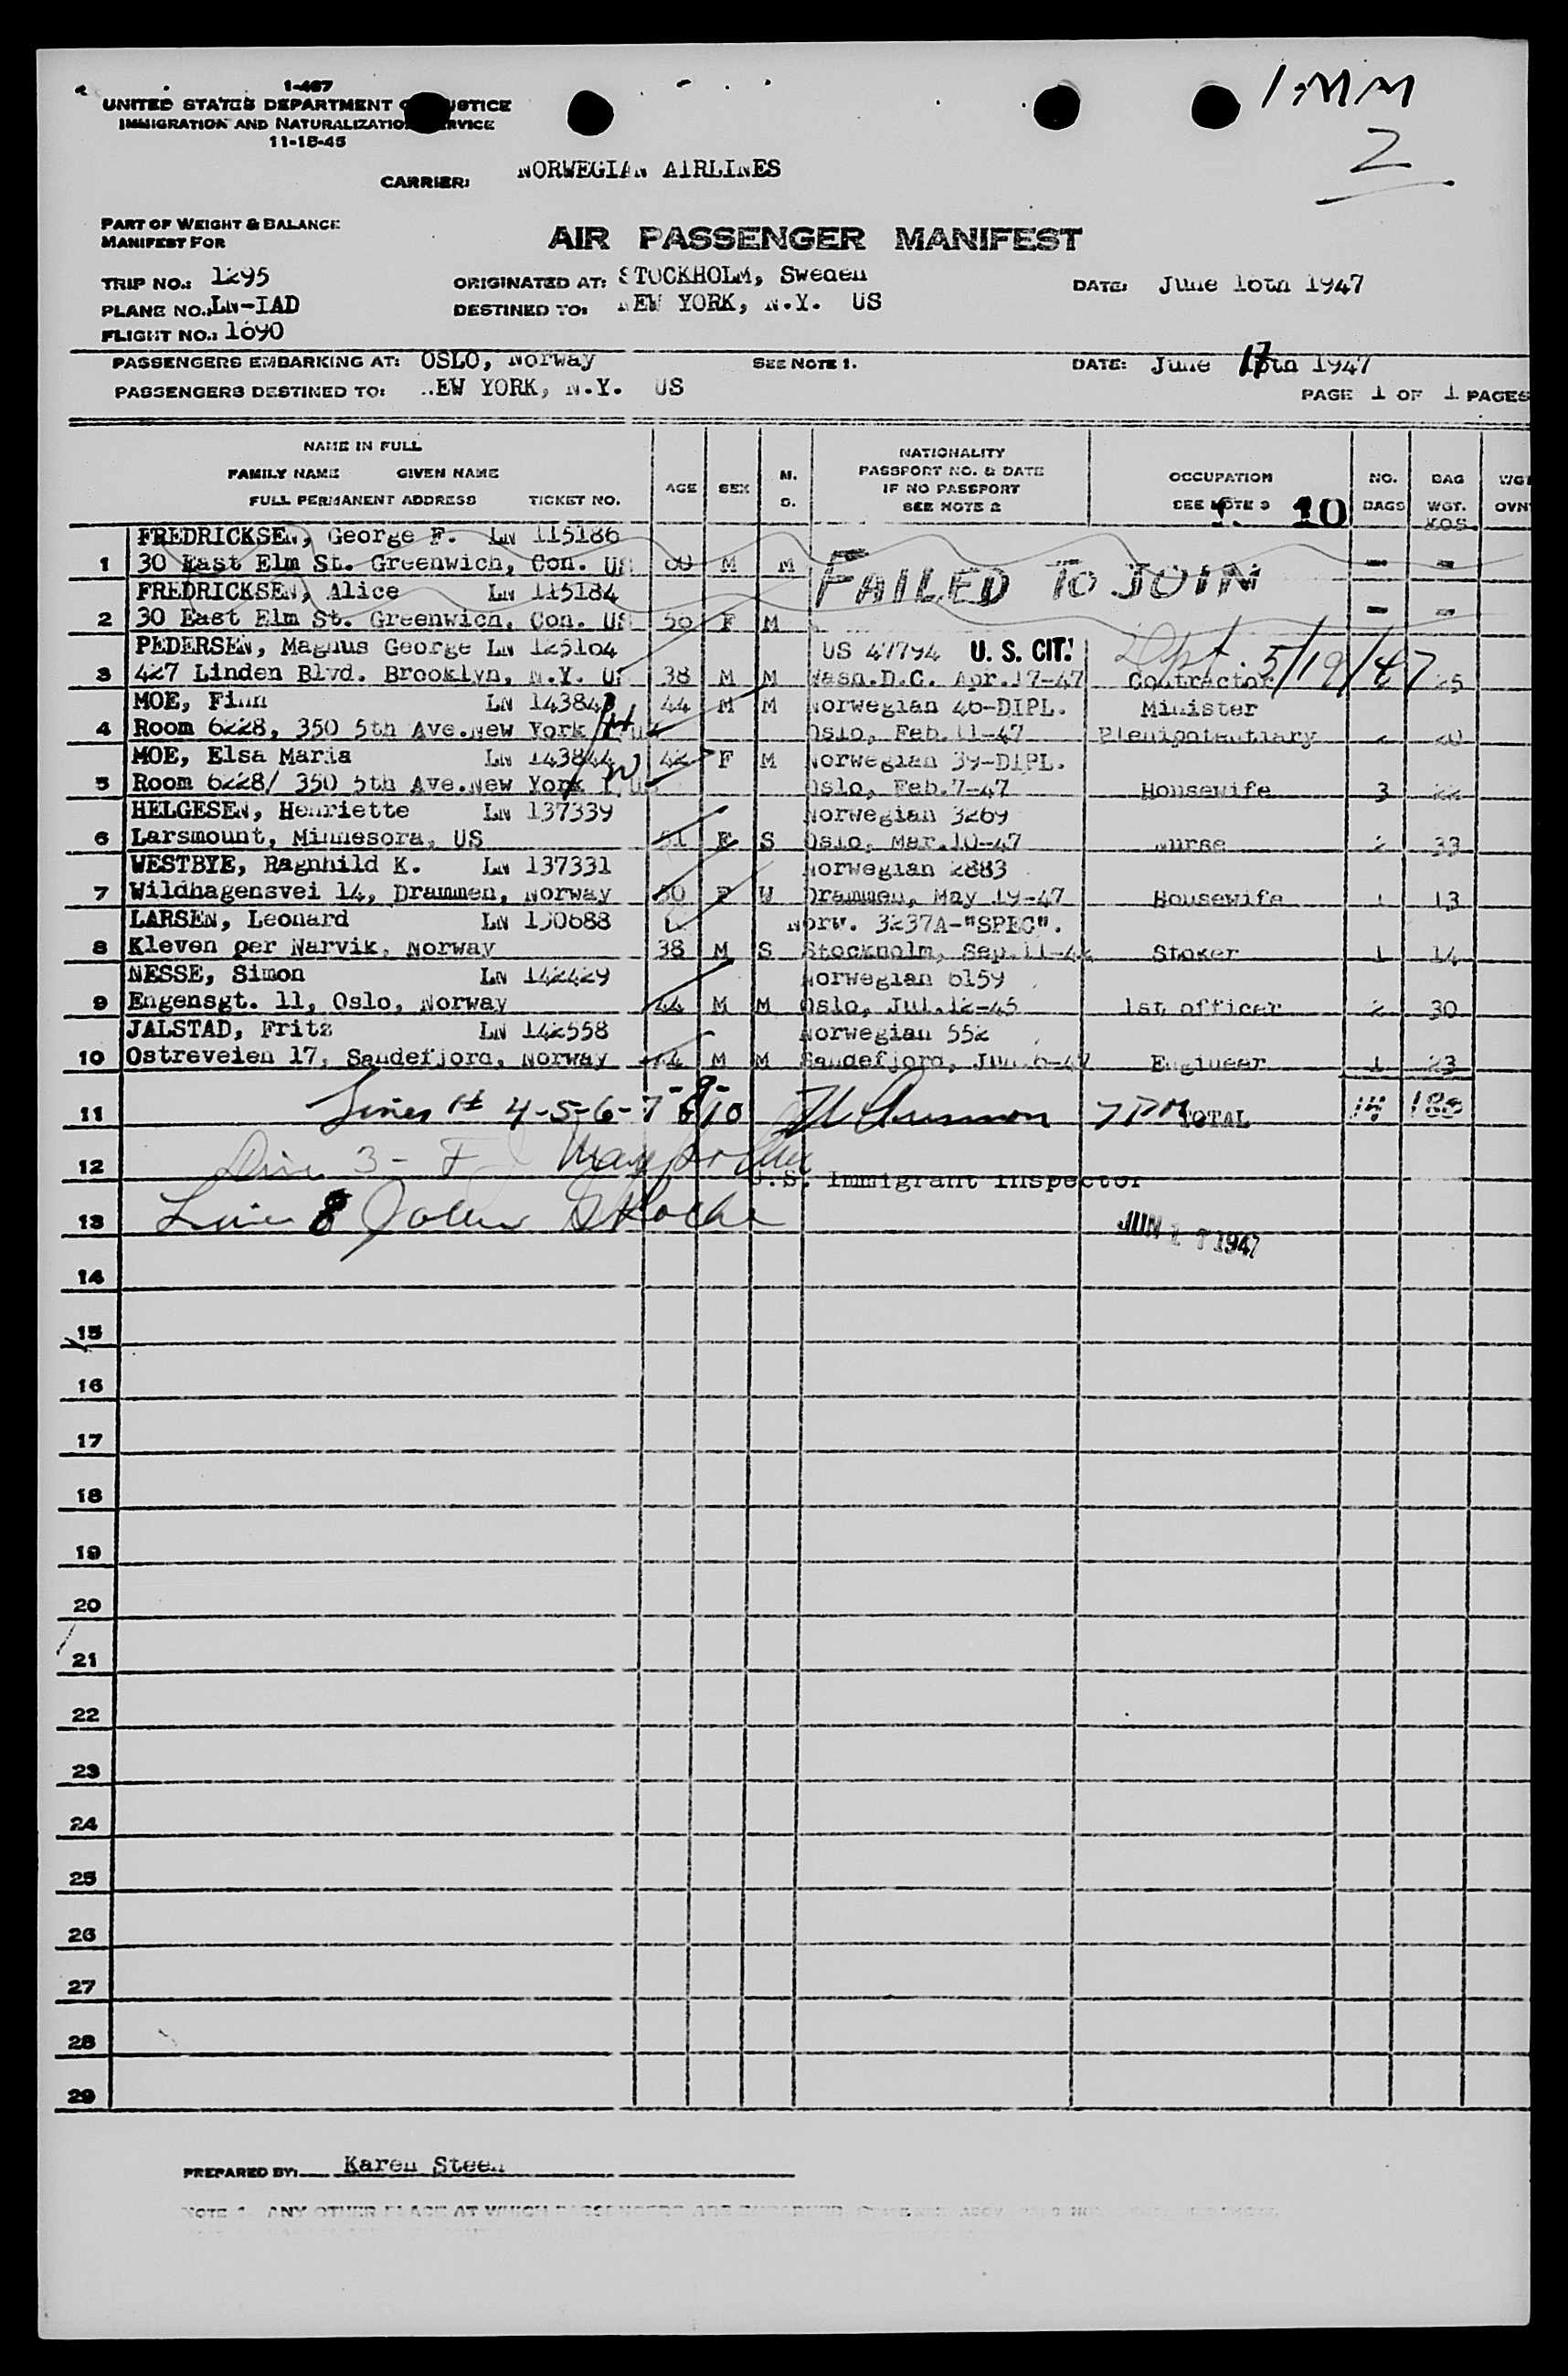 I-467
UNITED STATES DEPARTMENT OF JUSTICE
IMMIGRATION AND NATURALIZATION SERVICE
11-15-45
1-MM
2
CARRIER: NORWEGIAN AIRLINES
PART OF WEIGHT & BALANCE
MANIFEST FOR
AIR PASSENGER MANIFEST
TRIP NO.: 1295 ORIGINATED AT: STOCKHOLM, Sweden DATE: June 16th 1947
PLANE NO.: LN-IAD DESTINED TO: NEW YORK, N.Y. US
FLIGHT NO.: 1690
PASSENGERS EMBARKING AT: OSLO, Norway SEE NOTE 1. DATE: June 17th 1947
PASSENGERS DESTINED TO: NEW YORK, N.Y. US
PAGE 1 OF 1 PAGES
NAME IN FULL
FAMILY NAME GIVEN NAME
FULL PERMANENT ADDRESS TICKET NO. AGE SEX M. S. NATIONALITY PASSPORT NO. & DATE IF NO PASSPORT SEE NOTE 2 OCCUPATION SEE NOTE 3 NO. BAGS BAG WGT. KOS WGT OVN
10
FREDRICKSEN, George F. LN 115186
1 30 East Elm St. Greenwich, Con. US 60 M M - -
FAILED TO JOIN
FREDRICKSEN, Alice LN 115184
2 30 East Elm St. Greenwich, Con. US 50 F M - -
PEDERSEN, Magnus George LN 125104 US 47794 U. S. CIT. Dpt. 5/19/47
3 427 Linden Blvd. Brooklyn, N.Y. US 38 M M Wash.D.C. Apr.17-47 Contractor 25
MOE, Finn LN 143843 44 M M Norwegian 46-DIPL. Minister
4 Room 6228, 350 5th Ave.New York US Oslo, Feb.11-47 Plenipotentiary 2 20
MOE, Elsa Maria LN 143844 42 F M Norwegian 39-DIPL.
5 Room 6228/ 350 5th Ave.New York US Oslo, Feb.7-47 Housewife 3 22
HELGESEN, Henriette LN 137339 Norwegian 3269
6 Larsmount, Minnesora, US 51 F S Oslo, Mar.10-47 Nurse 2 33
WESTBYE, Ragnhild K. LN 137331 Norwegian 2883
7 Wildhagensvei 14, Drammen, Norway 50 F W Drammen, May 19-47 Housewife 1 13
LARSEN, Leonard LN 150688 Norw. 3237A-"SPEC".
8 Kleven per Narvik, Norway 38 M S Stockholm, Sep.11-42 Stoker 1 14
NESSE, Simon LN 142429 Norwegian 6159
9 Engensgt. 11, Oslo, Norway 44 M M Oslo, Jul.12-45 1st officer 2 30
JALSTAD, Fritz LN 142558 Norwegian 552
10 Ostreveien 17, Sandefjord, Norway 44 M M Sandefjord, Jun.6-47 Engineer 1 23
11 Lines # 4-5-6-7-9-10 7PM TOTAL 14 180
12 Line 3 -
U.S. Immigrant Inspector
13 Line 8 John Roche
JUN 17 1947
14
15
16
17
18
19
20
21
22
23
24
25
26
27
28
29
PREPARED BY: Karen Steen